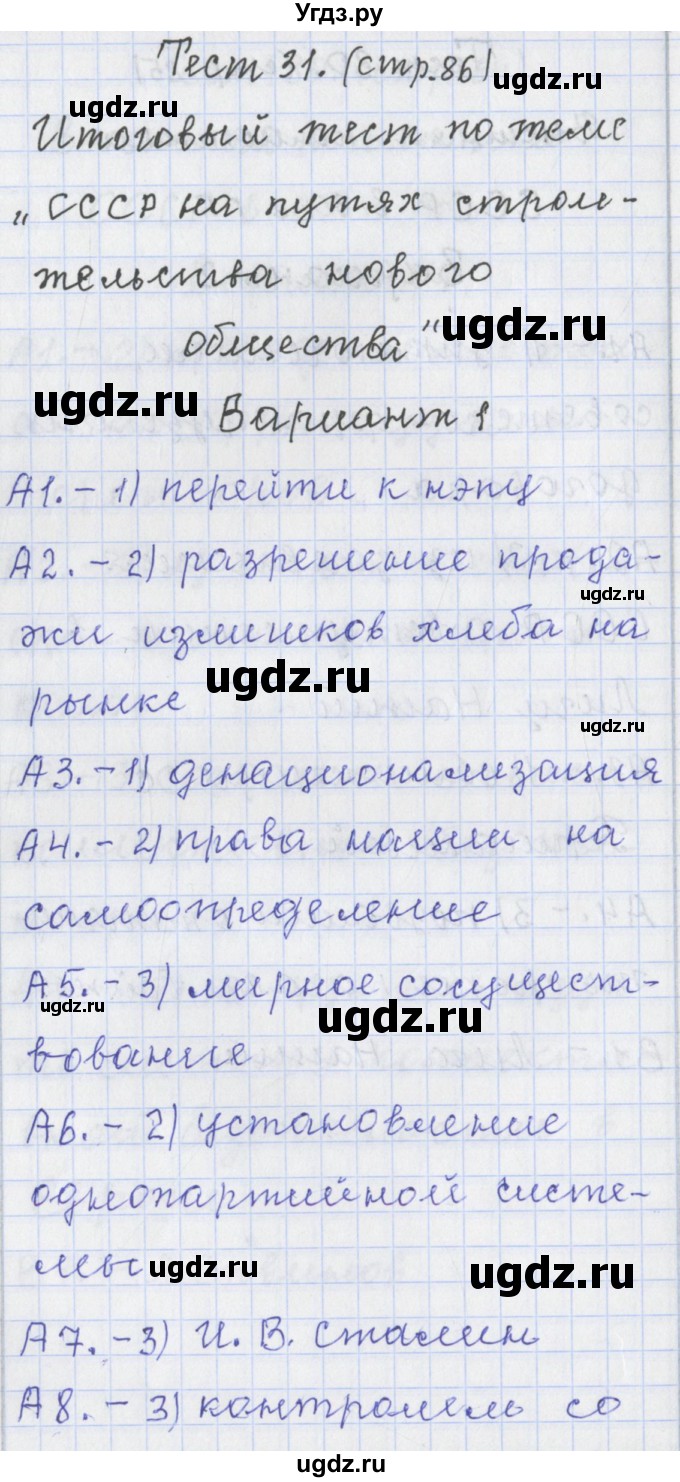 Угдз.ру
Тест 31. (стр.86)
ugdz.ru
Итоговый тест по теме
„ СССР на путях строи-
тельства нового
общества"
ugdz.ru
ugdz.ru
Вариант 1
А1. - 1) перейти к нэпу
А2. - 2) разрешение прода-
ugdz.ru
жи излишков хлеба на
ugdz.ru
рынке
ugdz.ru
А3. - 1) денационализация
А4. - 2) права нации на
самоопределение
А5. - 3) мирное сосущест-
ugdz.ru
ugdz.ru
вование
А6. - 2) установление
однопартийной систе-
мы
ugdz.ru
ugdz.ru
А7. - 3) И. В. Сталин
А8. - 3) контролель со
ugdz.ru
ugdz.ru